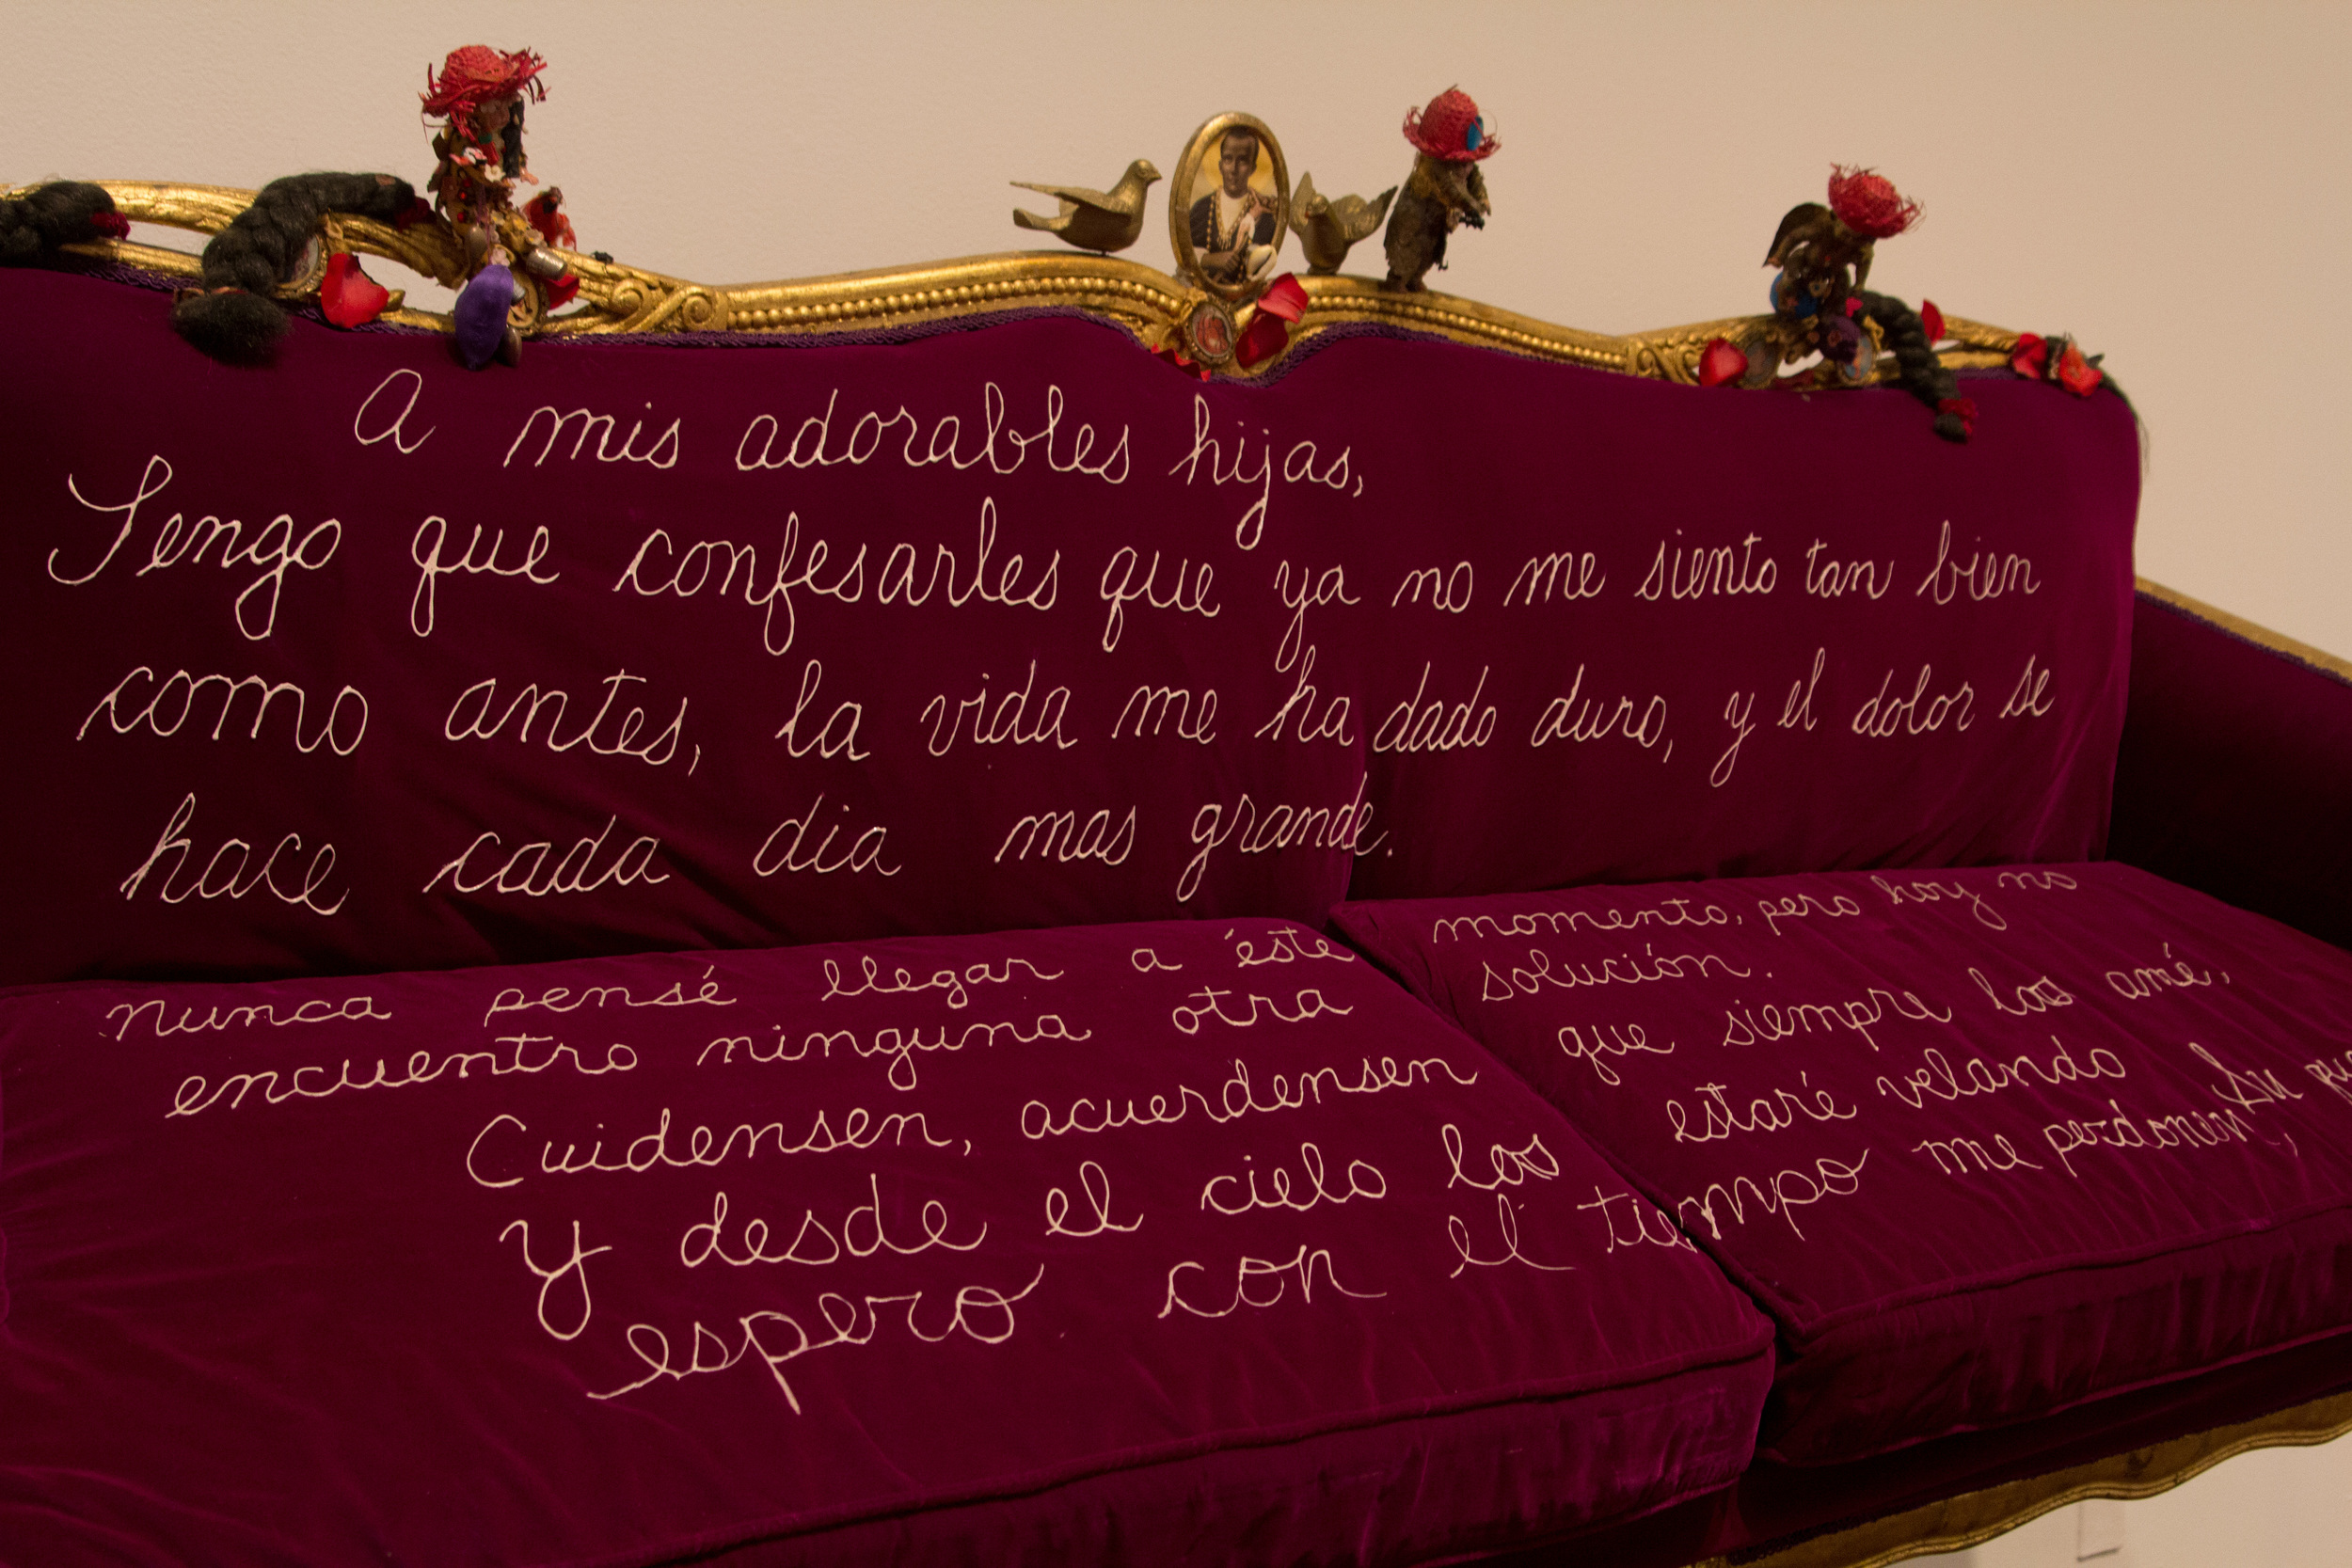 A mis adorables hijas,
Tengo que confesarles que ya no me siento tan bien
como antes, la vida me ha dado duro, y el dolor se
hace cada dia mas grande.
nunca pensé llegar a éste momento, pero hoy no
encuentro ninguna otra solución.
Cuidensen, acuerdensen que siempre las amé,
y desde el cielo las estaré velando
espero con el tiempo me perdonen, Su